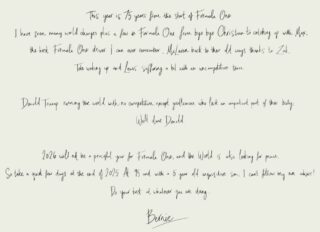 This year is 75 years from the start of Formula One.
I have seen many world changes plus a few in Formula One from bye bye Christian to catching up with Max,
the best Formula One driver I can ever remember. McLaren back to their old ways thanks to Zak.
Toto waking up and Lewis suffering a bit with an uncompetitive time.
Donald Trump running the world with no competitive except gentlemen who lack an important part of their body.
Well done Donald
2026 will be a peaceful year for Formula One, and the World is also looking for peace.
So take a good few days at the end of 2025. At 95 and with a 5 year old inquisitive son, I can't follow my own advice!
Do your best at whatever you are doing.
Bernie